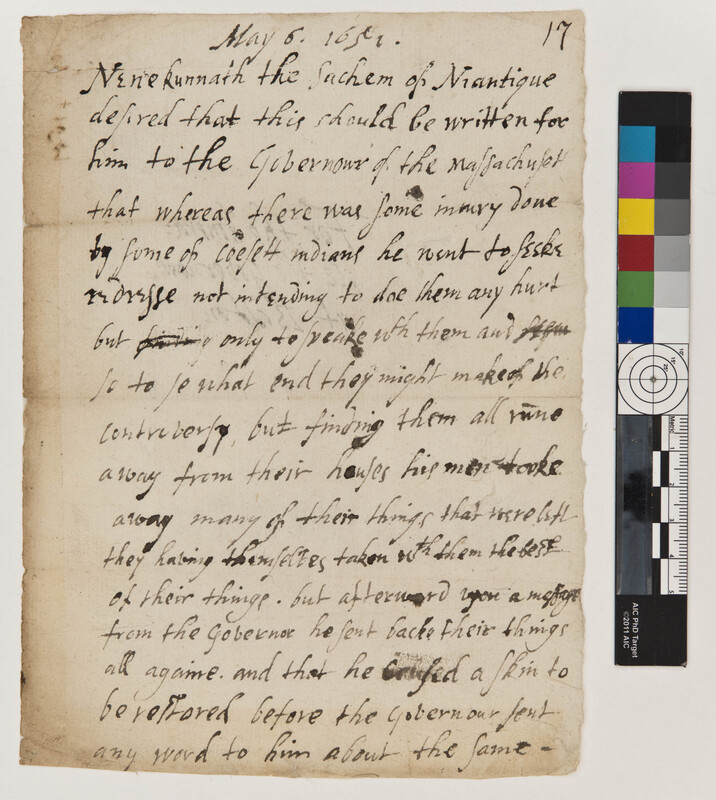 May 6. 1651.
17
Nenekunnath the sachem of Niantique
desired that this should be written for
him to the Governour of the Massachusett
that whereas there was some iniury done
by some of Coesett indians he went to seeke
redresse not intending to doe them any hurt
but finding only to speake wth them and
so to se what end they might make of the
controversy, but finding them all rune
away from their houses his men tooke
away many of their things that were left
they having themselves taken wth them the best
of their things. but afterward upon a message
from the Governor he sent backe their things
all againe. and that he caused a skin to
be restored before the Governour sent
any word to him about the same -
AIC PhD Target
©2011 AIC